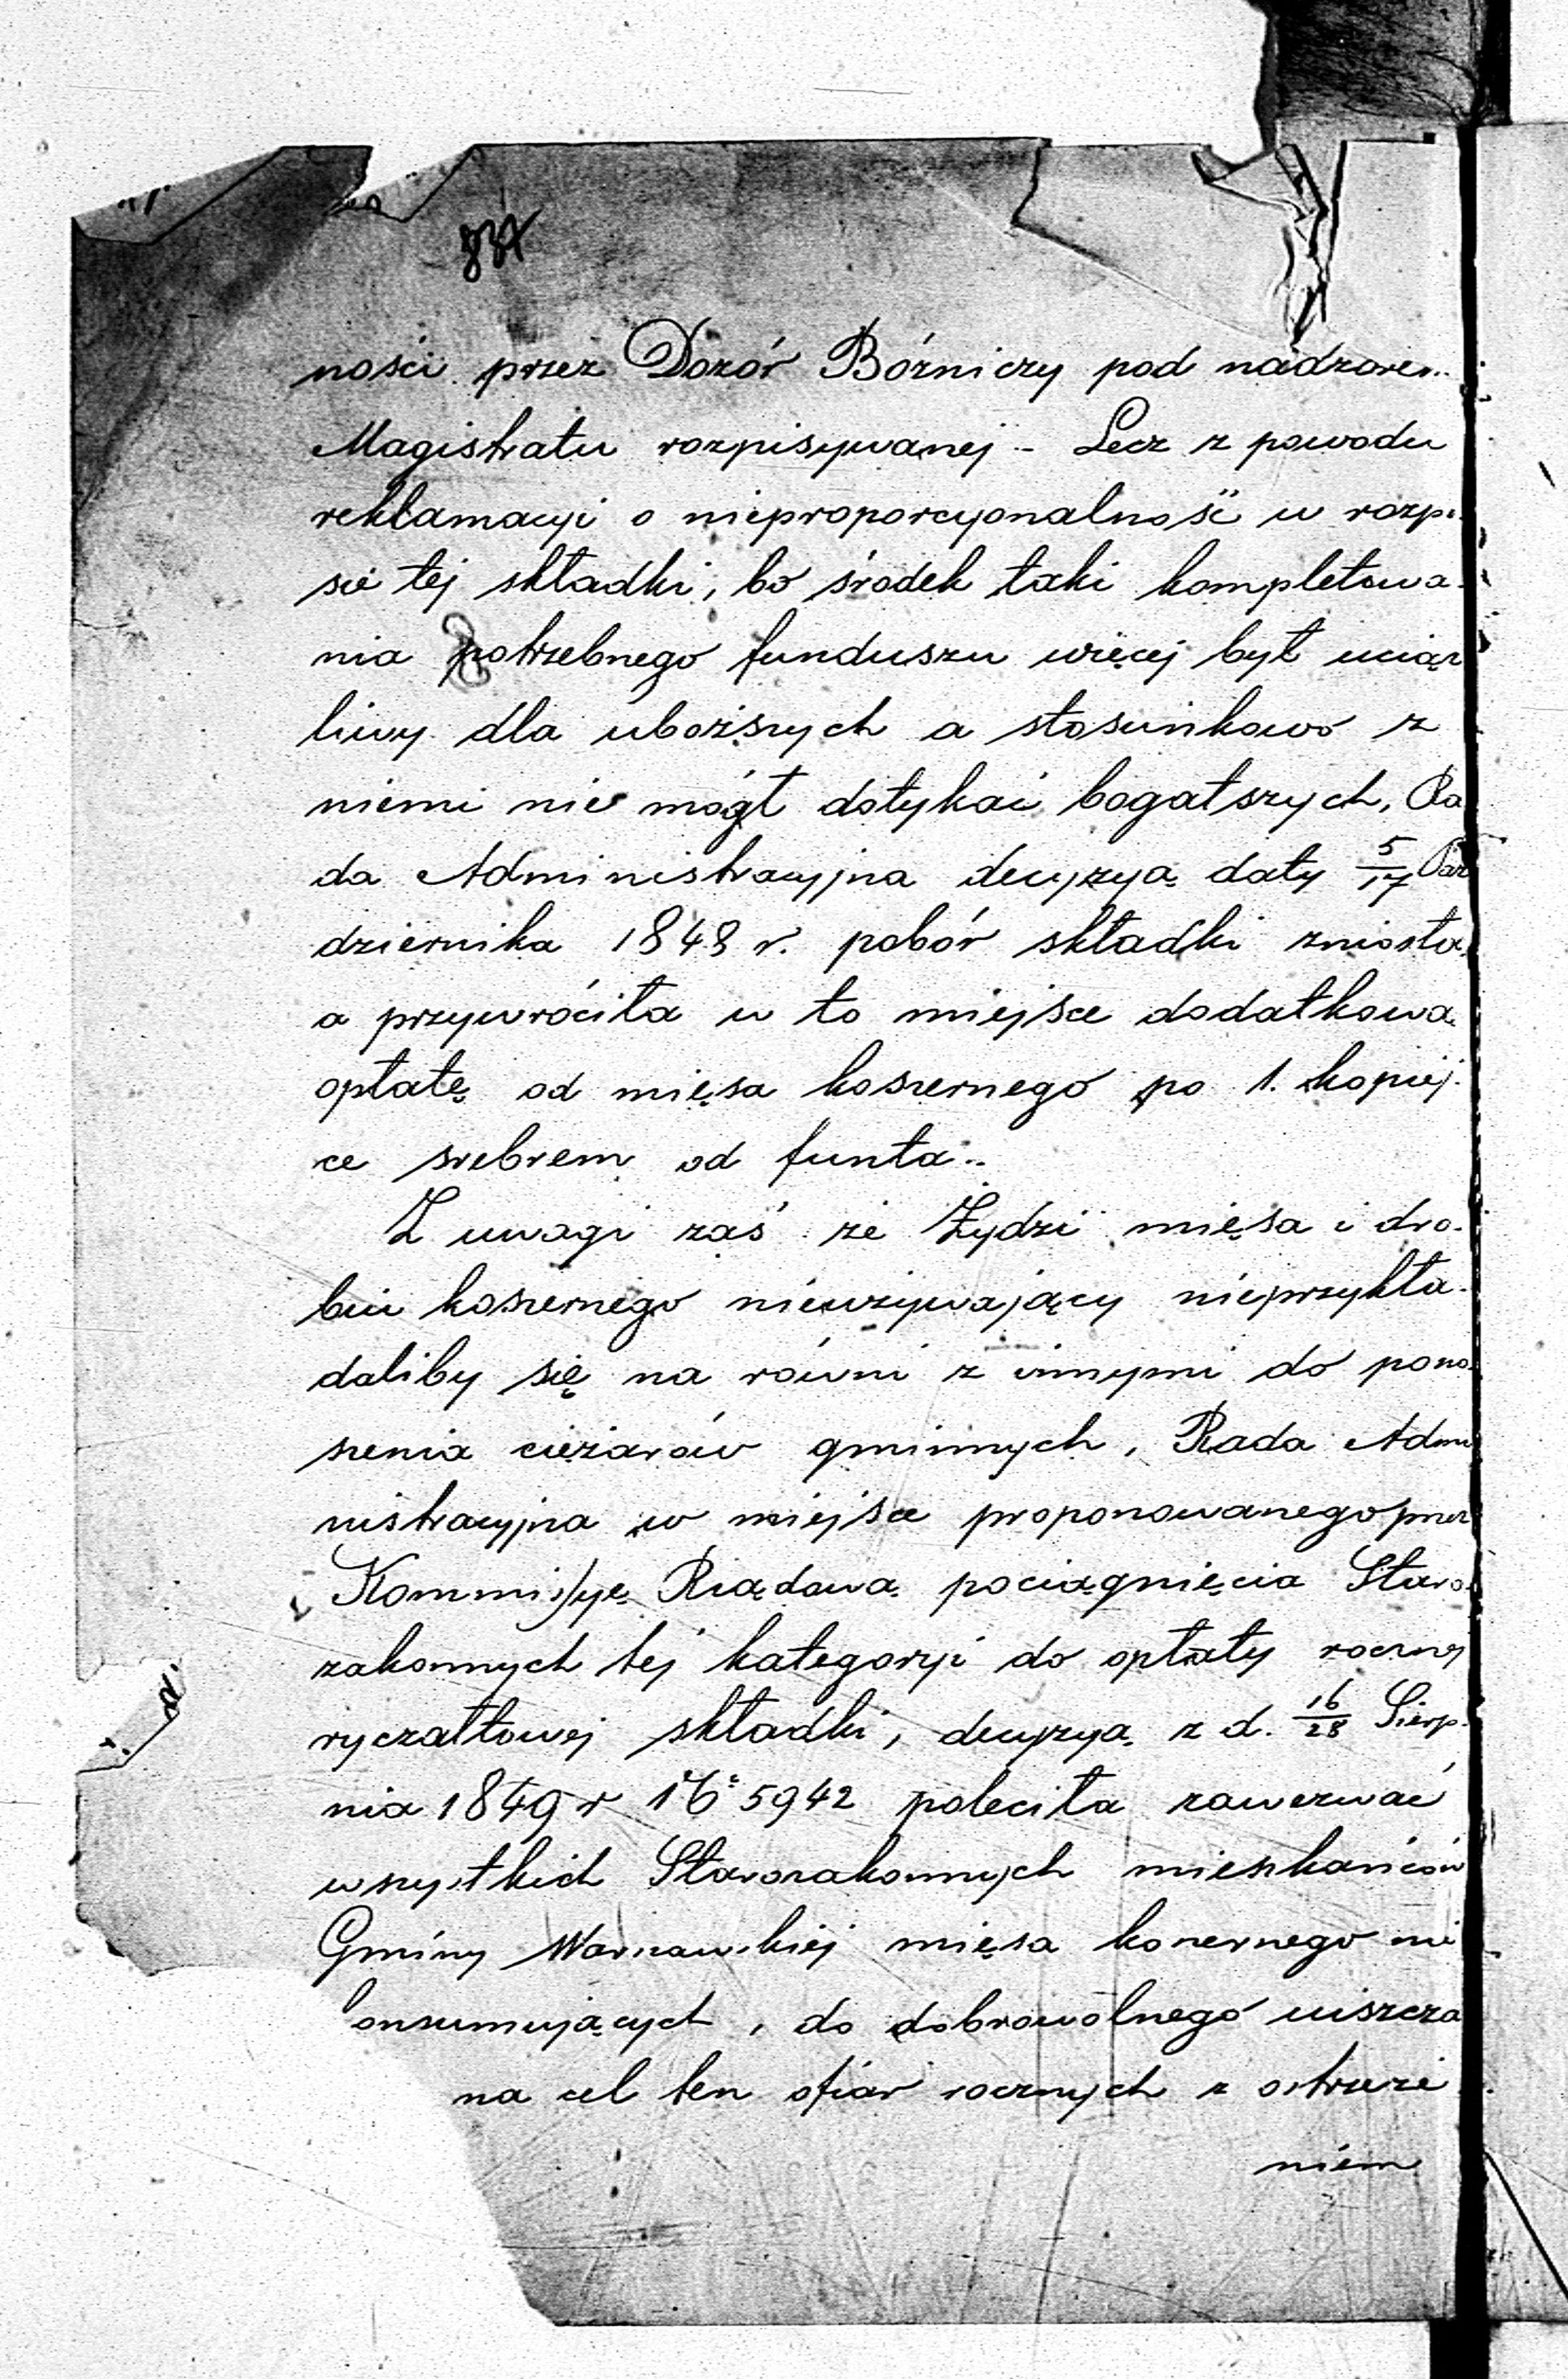 837
ności przez Dozór Bóżniczy pod nadzorem
Magistratu rozpisywanej - Lecz z powodu
reklamacyi o nieproporcyonalność w rozpi
sie tej składki, bo środek taki kompletowa-
nia potrzebnego funduszu więcej był uciąż
liwy dla uboższych a stosunkowo z
niemi nie mógł dotykać bogatszych, Ra
da Administracyjna decyzyą daty 5/17 Paź
dziernika 1848 r. pobór składki zniosła
a przywróciła w to miejsce dodatkową
opłatę od mięsa koszernego po 1. kopiej-
ce srebrem od funta..
Z uwagi zaś że Żydzi mięsa i dro-
biu koszernego nieużywający nieprzykła-
daliby się na równi z innymi do pono
szenia ciężarów gminnych, Rada Admi
nistracyjna w miejsce proponowanego przez
Kommissyę Rządową pociągnięcia Staro
zakonnych tej kategoryi do opłaty rocznej
ryczałtowej składki, decyzyą z d. 16/28 Sierp-
nia 1849 r № 5942 poleciła zawezwać
wszystkich Starozakonnych mieszkańców
Gminy Warszawskiej mięsa koszernego nie
onsumujących, do dobrowolnego uiszcza
na cel ten ofiar rocznych z ostrzeże
niem